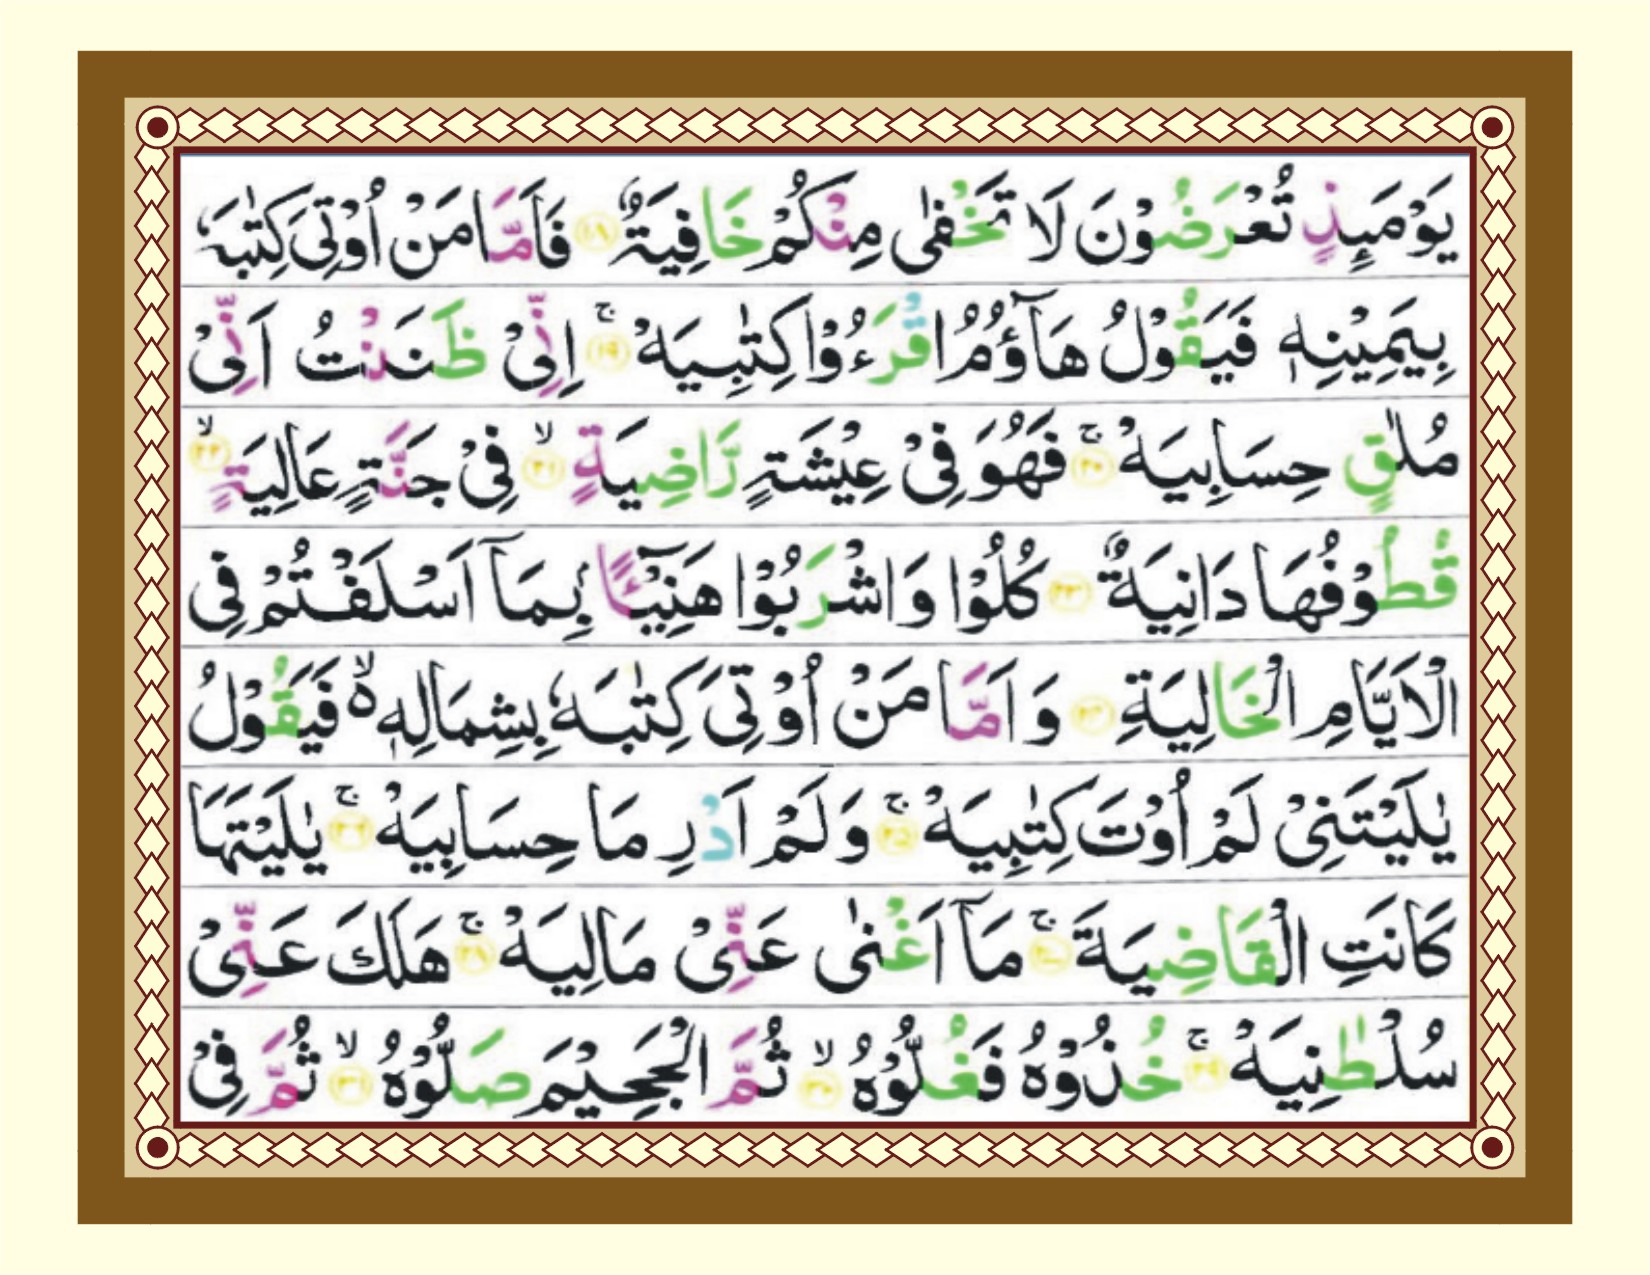 يَوْمَئِذٍ تُعْرَضُوْنَ لَا تَخْفٰى مِنْكُمْ خَافِيَةٌ ۱۸ فَاَمَّا مَنْ اُوْتِىَ كِتٰبَهٗ
بِيَمِيْنِهٖ فَيَقُوْلُ هَآؤُمُ اقْرَءُوْا كِتٰبِيَهْ ۚ ۱۹ اِنِّىْ ظَنَنْتُ اَنِّىْ
مُلٰقٍ حِسَابِيَهْ ۚ ۲۰ فَهُوَ فِىْ عِيْشَةٍ رَّاضِيَةٍ ۙ ۲۱ فِىْ جَنَّةٍ عَالِيَةٍ ۙ ۲۲
قُطُوْفُهَا دَانِيَةٌ ۲۳ كُلُوْا وَاشْرَبُوْا هَنِيْٓئًۢا بِمَآ اَسْلَفْتُمْ فِى
الْاَيَّامِ الْخَالِيَةِ ۲۴ وَاَمَّا مَنْ اُوْتِىَ كِتٰبَهٗ بِشِمَالِهٖ ۙ۬ فَيَقُوْلُ
يٰلَيْتَنِىْ لَمْ اُوْتَ كِتٰبِيَهْ ۚ ۲۵ وَلَمْ اَدْرِ مَا حِسَابِيَهْ ۚ ۲۶ يٰلَيْتَهَا
كَانَتِ الْقَاضِيَةَ ۚ ۲۷ مَآ اَغْنٰى عَنِّىْ مَالِيَهْ ۚ ۲۸ هَلَكَ عَنِّىْ
سُلْطٰنِيَهْ ۚ ۲۹ خُذُوْهُ فَغُلُّوْهُ ۙ ۳۰ ثُمَّ الْجَحِيْمَ صَلُّوْهُ ۙ ۳۱ ثُمَّ فِىْ